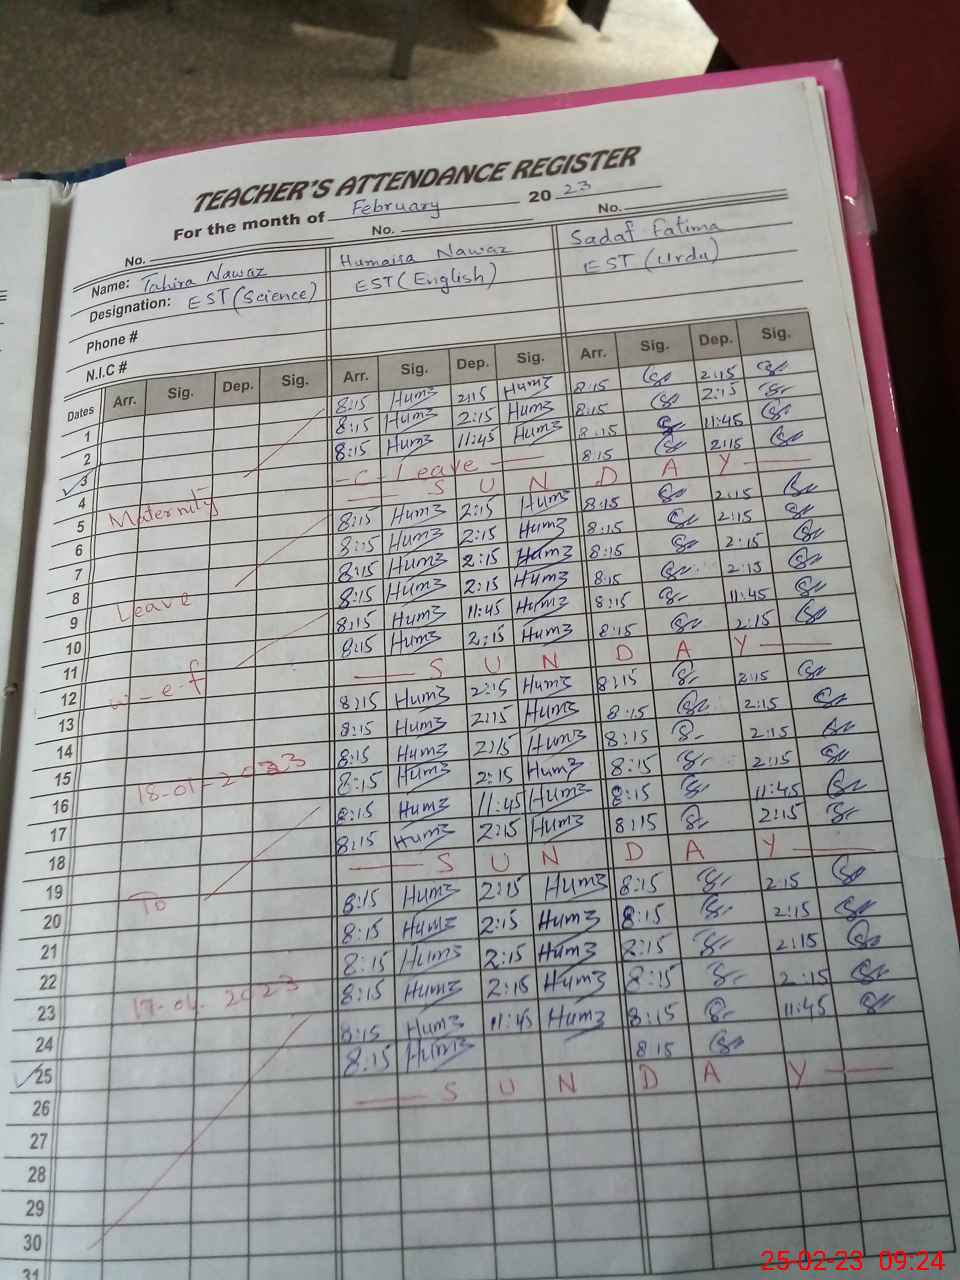 TEACHER'S ATTENDANCE REGISTER
For the month of February 2023
No. No. No.
Name: Tahira Nawaz Humaisa Nawaz Sadaf Fatima
Designation: EST (Science) EST (English) EST (Urdu)
Phone #
N.I.C #
Dates Arr. Sig. Dep. Sig. Arr. Sig. Dep. Sig. Arr. Sig. Dep. Sig.
1 8:15 Hum3 2:15 Hum3 8:15 2:15
2 8:15 Hum3 2:15 Hum3 8:15 2:15
3 8:15 Hum3 11:45 Hum3 8:15 11:45
4 - C - Leave - 8:15 2:15
5 Maternity S U N D A Y
6 8:15 Hum3 2:15 Hum3 8:15 2:15
7 8:15 Hum3 2:15 Hum3 8:15 2:15
8 8:15 Hum3 2:15 Hum3 8:15 2:15
9 Leave 8:15 Hum3 2:15 Hum3 8:15 2:15
10 8:15 Hum3 11:45 Hum3 8:15 11:45
11 8:15 Hum3 2:15 Hum3 8:15 2:15
12 w-e-f S U N D A Y
13 8:15 Hum3 2:15 Hum3 8:15 2:15
14 8:15 Hum3 2:15 Hum3 8:15 2:15
15 18-01-2023 8:15 Hum3 2:15 Hum3 8:15 2:15
16 8:15 Hum3 2:15 Hum3 8:15 2:15
17 8:15 Hum3 11:45 Hum3 8:15 11:45
18 8:15 Hum3 2:15 Hum3 8:15 2:15
19 To S U N D A Y
20 8:15 Hum3 2:15 Hum3 8:15 2:15
21 8:15 Hum3 2:15 Hum3 8:15 2:15
22 8:15 Hum3 2:15 Hum3 2:15 2:15
23 17-04-2023 8:15 Hum3 2:15 Hum3 8:15 2:15
24 8:15 Hum3 11:45 Hum3 8:15 11:45
25 8:15 Hum3 8:15
26 S U N D A Y
27
28
29
30
31
25-02-23 09:24